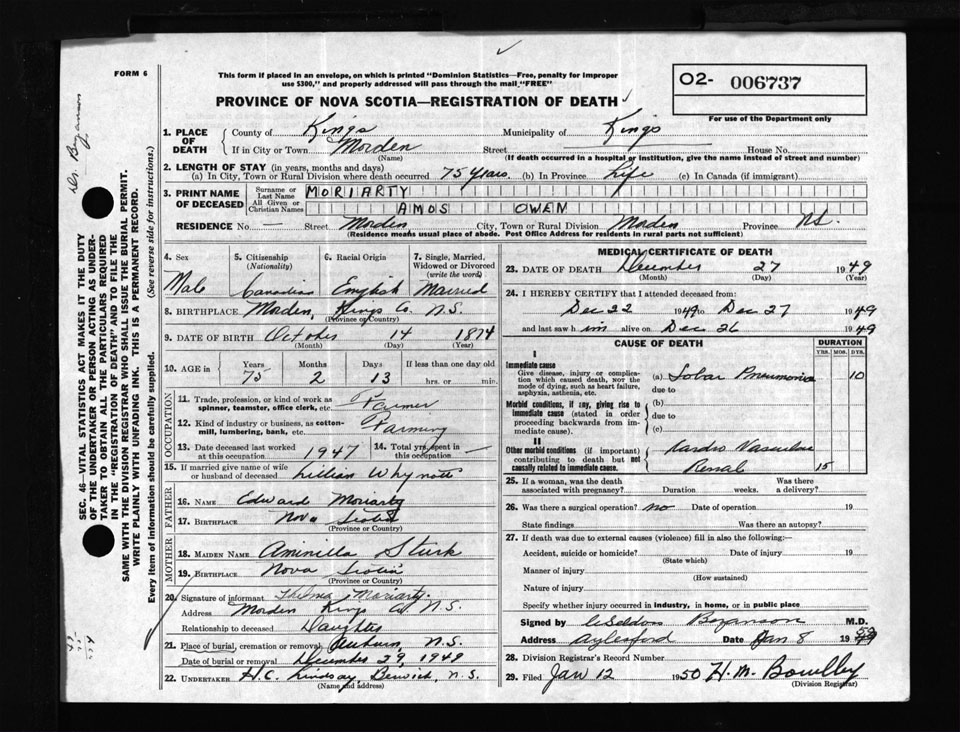 FORM 6
This form if placed in an envelope, on which is printed "Dominion Statistics—Free, penalty for improper
use $300," and properly addressed will pass through the mail "FREE"
O2- 006737
For use of the Department only
PROVINCE OF NOVA SCOTIA—REGISTRATION OF DEATH
Dr. Bezanson
SEC. 46—VITAL STATISTICS ACT MAKES IT THE DUTY
OF THE UNDERTAKER OR PERSON ACTING AS UNDER-
TAKER TO OBTAIN ALL THE PARTICULARS REQUIRED
IN THE "REGISTRATION OF DEATH" AND TO FILE THE
SAME WITH THE DIVISION REGISTRAR WHO SHALL ISSUE THE BURIAL PERMIT.
WRITE PLAINLY WITH UNFADING INK. THIS IS A PERMANENT RECORD.
Every item of information should be carefully supplied. (See reverse side for instructions.)
1. PLACE OF DEATH County of Kings Municipality of Kings
If in City or Town Morden Street House No.
(Name) (If death occurred in a hospital or institution, give the name instead of street and number)
2. LENGTH OF STAY (in years, months and days)
(a) In City, Town or Rural Division where death occurred 75 years. (b) In Province Life (c) In Canada (if immigrant)
3. PRINT NAME OF DECEASED Surname or Last Name MORIARTY
All Given or Christian Names AMOS OWEN
RESIDENCE No. — Street Morden City, Town or Rural Division Morden Province N.S.
(Residence means usual place of abode. Post Office Address for residents in rural parts not sufficient)
4. Sex 5. Citizenship (Nationality) 6. Racial Origin 7. Single, Married, Widowed or Divorced (write the word)
Male Canadian English Married
8. BIRTHPLACE Morden, Kings Co. N.S.
(Province or Country)
9. DATE OF BIRTH October 14 1874
(Month) (Day) (Year)
10. AGE in Years Months Days If less than one day old
75 2 13 hrs. or min.
OCCUPATION
11. Trade, profession, or kind of work as
spinner, teamster, office clerk, etc. Farmer
12. Kind of industry or business, as cotton-
mill, lumbering, bank, etc. Farming
13. Date deceased last worked at this occupation 1947 14. Total yrs. spent in this occupation —
15. If married give name of wife
or husband of deceased Lillian Whynott
FATHER
16. NAME Edward Moriarty
17. BIRTHPLACE Nova Scotia
(Province or Country)
MOTHER
18. MAIDEN NAME Aminilla Sturk
19. BIRTHPLACE Nova Scotia
(Province or Country)
20. Signature of informant Thelma Moriarty.
Address Morden Kings Co N.S.
Relationship to deceased Daughter
21. Place of burial, cremation or removal Auburn, N.S.
Date of burial or removal December 29, 1949
22. UNDERTAKER H.C. Lindsay Berwick, N.S.
(Name and address)
MEDICAL CERTIFICATE OF DEATH
23. DATE OF DEATH December 27 1949
(Month) (Day) (Year)
24. I HEREBY CERTIFY that I attended deceased from:
Dec 22 1949 to Dec 27 1949
and last saw him alive on Dec 26 1949
CAUSE OF DEATH DURATION
YRS. MOS. DYS.
I
Immediate cause
Give disease, injury or complica-
tion which caused death, NOT the
mode of dying, such as heart failure,
asphyxia, asthenia, etc.
(a) Lobar Pneumonia 10
due to
Morbid conditions, if any, giving rise to
immediate cause (stated in order
proceeding backwards from im-
mediate cause).
(b)
due to
(c)
II
Other morbid conditions (if important)
contributing to death but not
causally related to immediate cause.
Cardio Vascular
Renal 15
25. If a woman, was the death
associated with pregnancy? Duration weeks. Was there a delivery?
26. Was there a surgical operation? no Date of operation 19
State findings Was there an autopsy?
27. If death was due to external causes (violence) fill in also the following:—
Accident, suicide or homicide? Date of injury 19
(State which)
Manner of injury
(How sustained)
Nature of injury
Specify whether injury occurred in industry, in home, or in public place
Signed by Bezanson M.D.
Address Aylesford Date Jan 8 19
28. Division Registrar's Record Number
29. Filed Jan 12 1950 H.M. Bowlby
(Division Registrar)